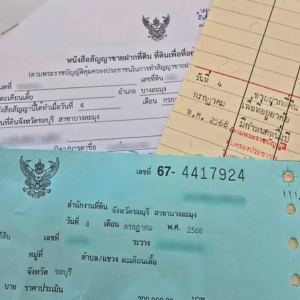 หนังสือสัญญาขายฝากที่ดิน ที่ดินเพื่อที่อยู่
(ตามพระราชบัญญัติคุ้มครองประชาชนในการทำสัญญาขายฝาก
เลขที่ดิน
ตะเคียนเตี้ย
อำเภอ บางละมุง
สือสัญญานี้ทำเมื่อวันที่ 4
เดือน กรกฎาคม
ที่ดินจังหวัดชลบุรี สาขาบางละมุง
วันที่ 4
กรกฎาคม
พ.ศ. 2568
ขายฝากที่ดิน
เพื่อที่อยู่อาศัย
มีกำหนดหนึ่งปี
เลขที่ 67- 4417924
สำนักงานที่ดิน จังหวัดชลบุรี สาขาบางละมุง
วันที่ 4 เดือน กรกฎาคม พ.ศ. 2568
ระวาง
หมู่ที่ ตำบล/แขวง ตะเคียนเตี้ย
จังหวัด ชลบุรี
ราคาประเมิน